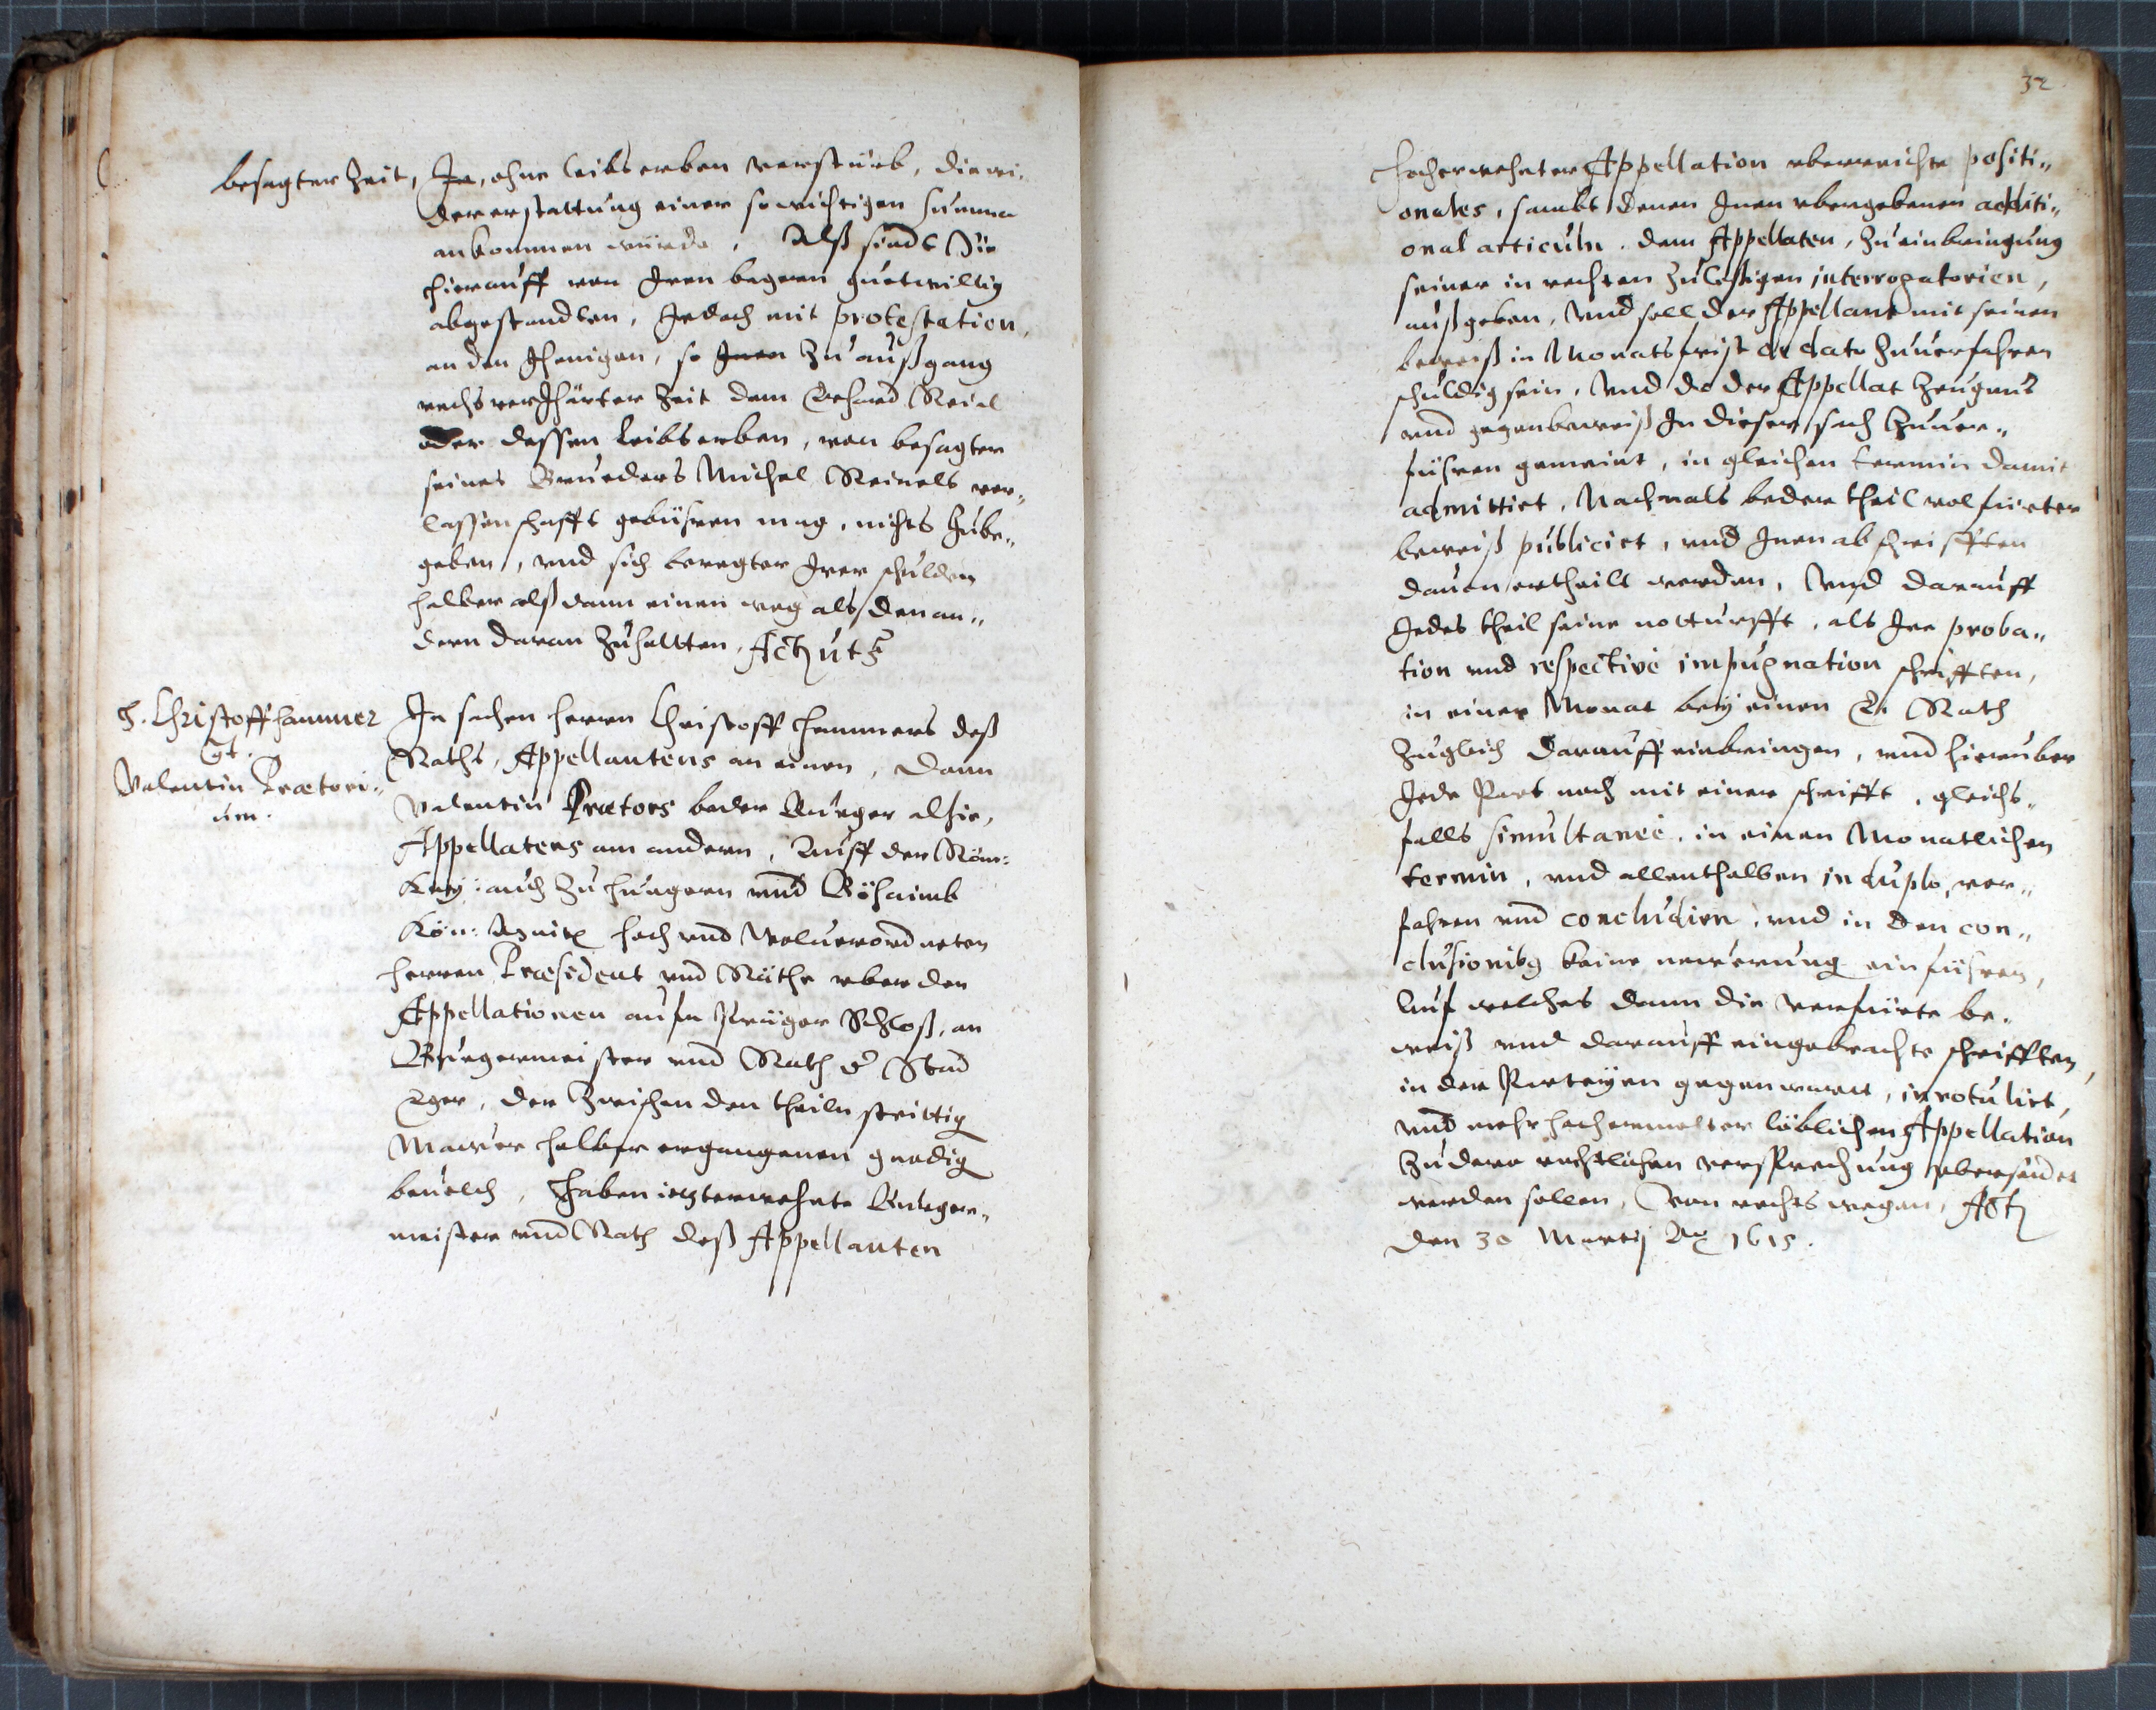 besagter Zeit, Je, ohne leibs erben verstürb, die wi-
dererstattung einer so wichtigen summa
ankommen würde, Alß sindt Sie
hierauff von Iren begern guetwillig
abgestandten, Jedoch mit protestation,
an den Jhenigen, so Inen zu außgang
rechs verJhärter Zeit dem Erhard Reinl
oder dessen leibs erben, von besagter
seines Brueders Michel Reinels ver„
lassenschafft gebühren mag, nichts zube„
geben, vnd sich beregter Irer schulden
halber alß dann einen weg als den an„
dern daran zuhallten, Act ut s
H. Christoff hammer
Ct.
Valentin Prætori„
um.
In sachen herrn Christoff Hammers deß
Raths, Appellantens an einen, dann
Valentin Prætors beder Burger alhie,
Appellatens am andern, Auff der Röm:
Kay: auch zu hungern vnd Böhaimb
Kön: hoch vnd wolverordneten
herren Præsident vnd Räthe vber den
Appellationen aufm Prager Schloß, an
Burgermeister vnd Rath d Stad
Eger, der zwischen den theiln strittig
Mawer halber ergangenen gnedig
beuelch, Haben ietzterwehnte Burger„
meister vnd Rath deß Appellanten
32
Hocherwehnter Appellation vberreichte positi„
onales, sambt denen Inen vbergebenen additi„
onal articuln, dem Appellaten, zu einbringung
seiner in rechten zuleßigen interrogatorien,
außgeben, Vnd soll der Appellant mit seinen
beweiß in Monatsfrist de dato zuuerfahren
schuldig sein, Vnd do der Appellat zeugnus
vnd gegenbeweiß In dieser sach zuuer„
führen gemeint, in gleichen termin damit
admittirt, Nachmals beder theil volfürter
beweiß publicirt, vnd Inen abschrifften
dauon ertheilt werden, Vnd darauff
Jedes theil seine notturfft, als Ire proba„
tion vnd respectivè impugnation schrifften,
in einer Monat bey einen E. Rath
zugleich darauff einbringen, vnd hierüber
Jede Part noch mit einer schrifft, gleichs„
falls simultaneè, in einen Monatlichen
termin, vnd allenthalben in duplo, ver„
fahren vnd concludirn, vnd in den con„
clusionibg keine newerung einführen,
Auf welches dann die verfürte be„
weiß vnd darauff eingebrachte schrifften,
in der Parteyen gegenwart, inrotulirt,
vnd mehr hochermelter löblichen Appellation
zu dero rechtlichen versprechung vbersendet
werden sollen, Von rechts wegen, Act
den 30 Martij Ao 1615.